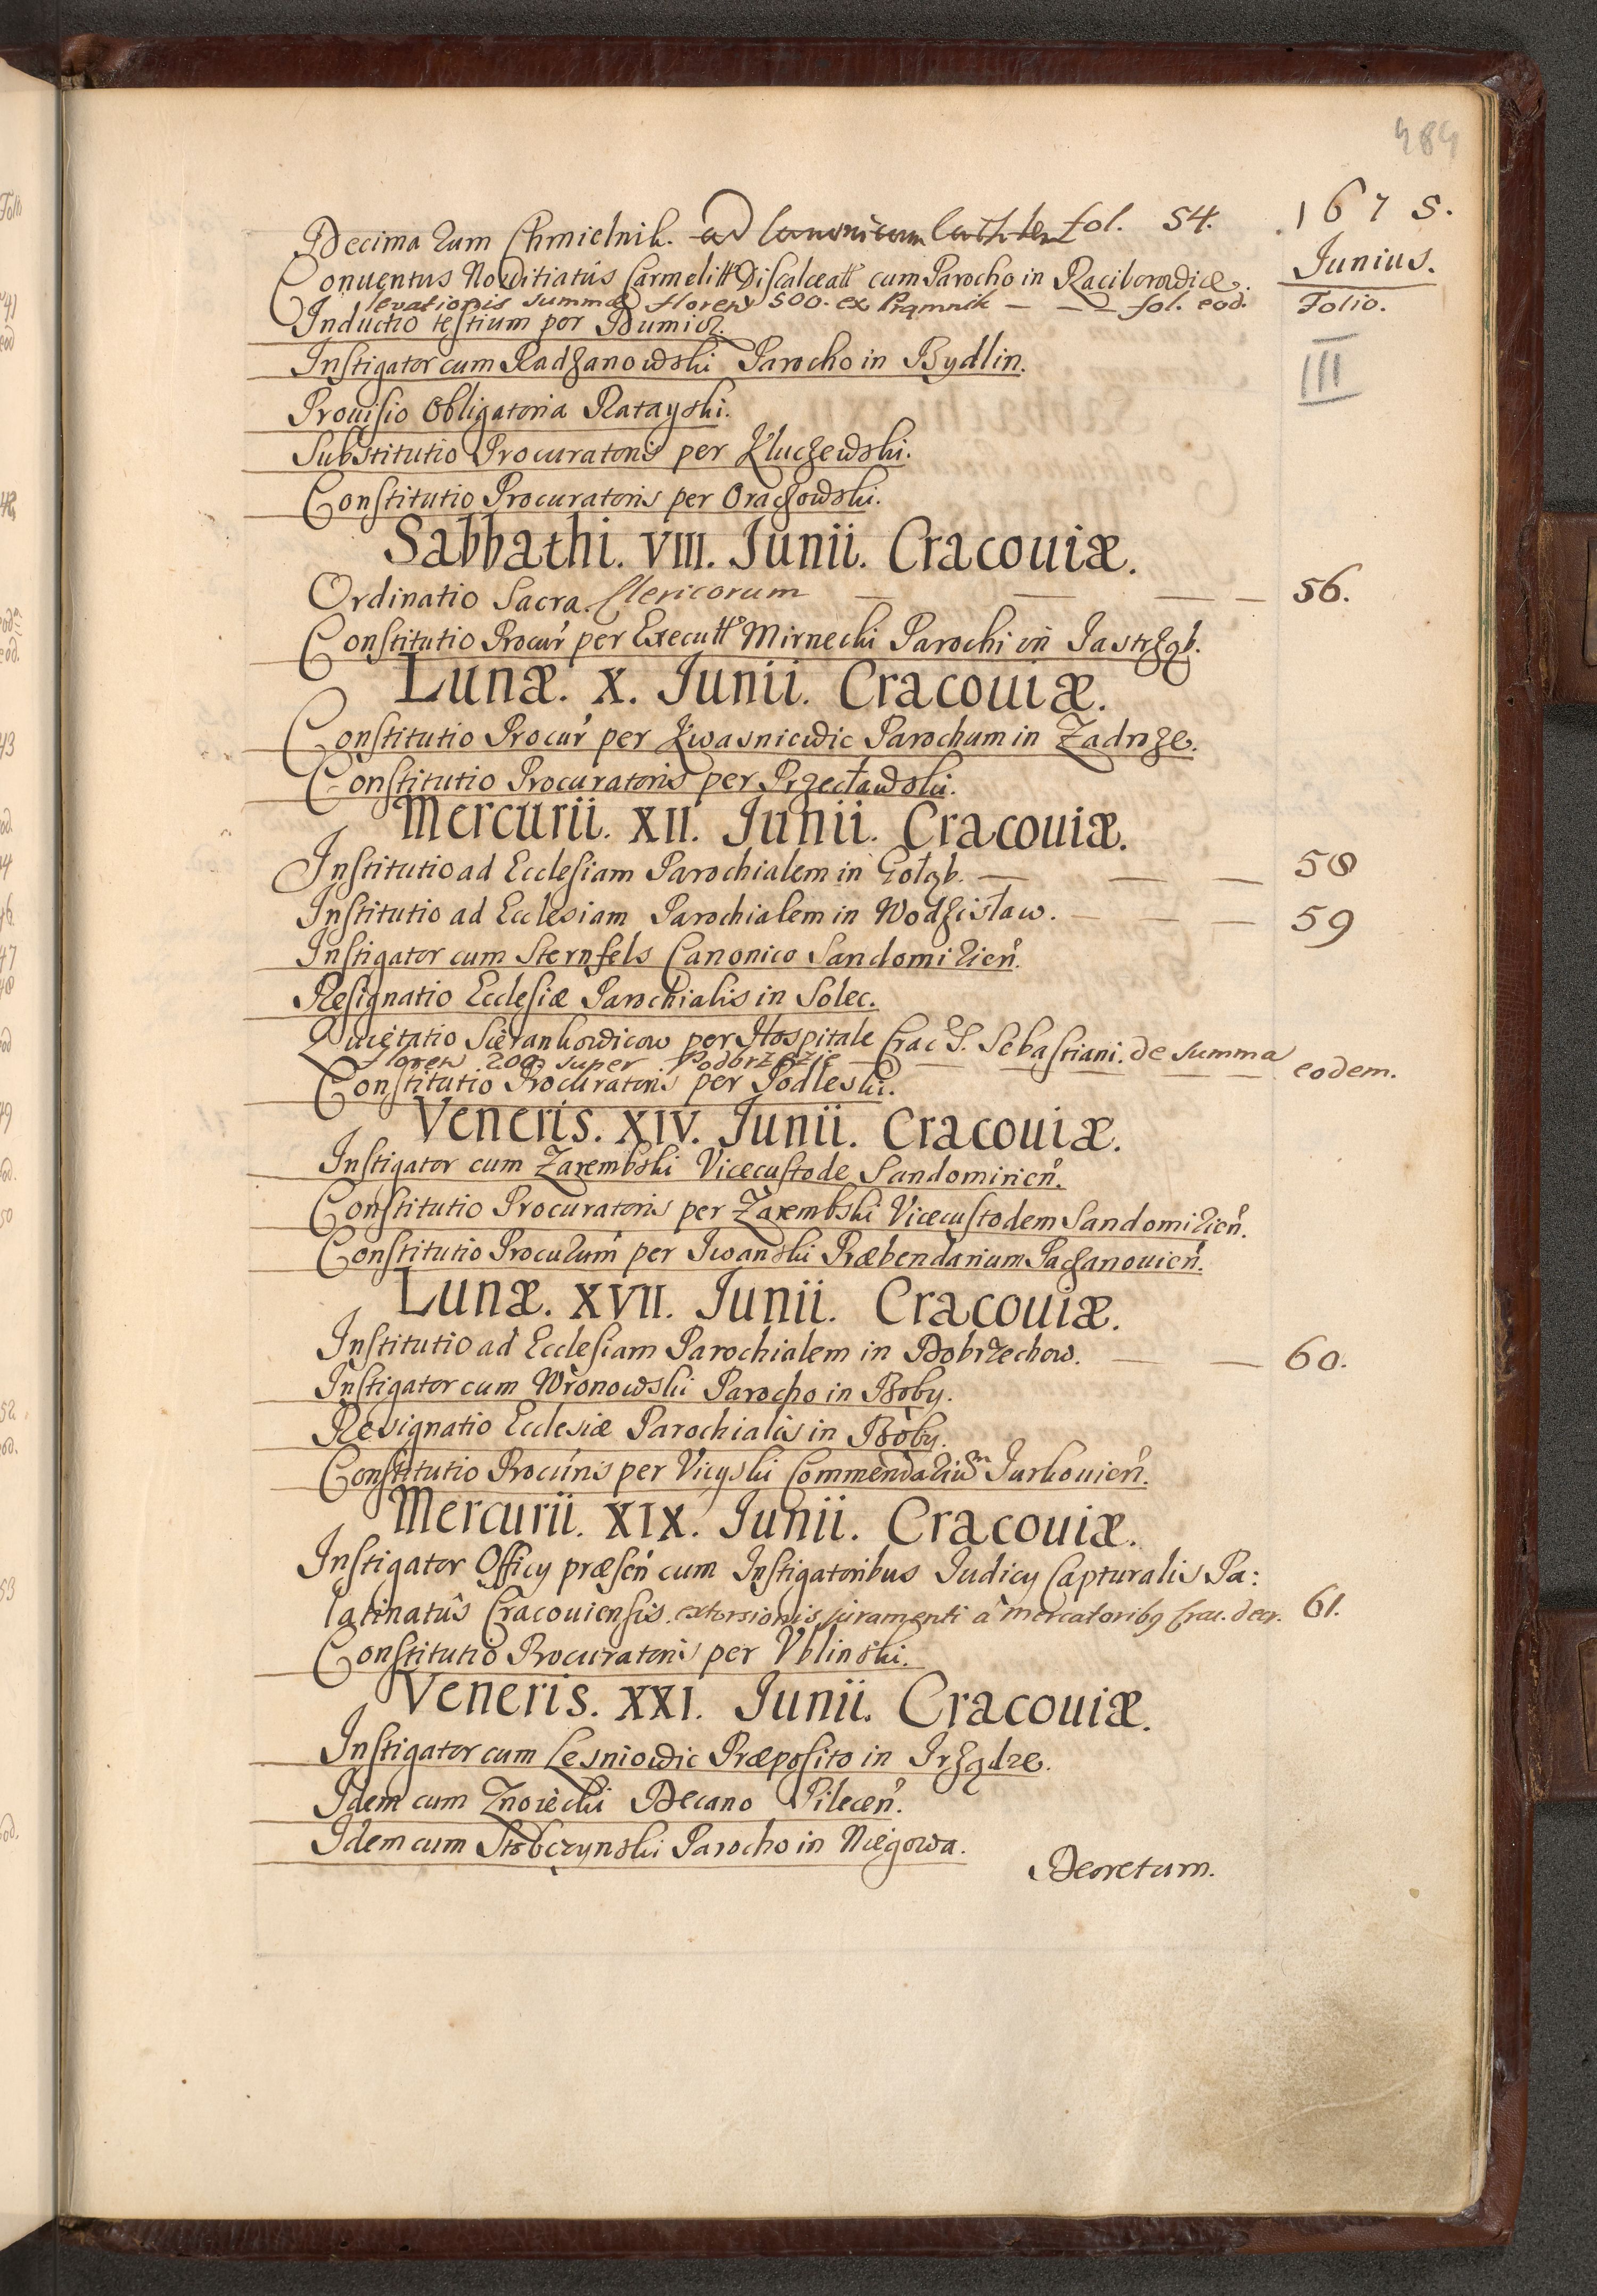 484
1675.
Junius.
Folio.
III
Decimarum Chmielnik. ad Canonicum fol. 54.
Conuentus Nowitiatûs Carmelitt Discalceatt cum Parocho in Raciborowice.
levationis summæ floren 500. ex Prąmnik — — fol. eod.
Inductio testium per Dumicz.
Instigator cum Radzanowski Parocho in Bydlin.
Prouisio ObligatoriaRatayski.
Substitutio Procuratoris per Kluczewski.
Constitutio Procuratoris per Oraczowski.
Sabbathi. VIII. Junii. Cracouiæ.
Ordinatio Sacra. Clericorum — — — — 56.
Constitutio Procur per Executt Mirnecki Parochi in Jastrząb.
Lunæ. X. Junii. Cracouiæ.
Constitutio Procur per Kwasniewic Parochum in Zadroże.
Constitutio Procuratoris per Przecławski.
Mercurii. XII. Junii. Cracouiæ.
Institutio ad Ecclesiam Parochialem in Gołąb. — — — 58
Institutio ad Ecclesiam Parochialem in Wodzisław. — — — 59
Instigator cum Sternfels Canonico Sandomirien.
Resignatio Ecclesiæ Parochialis in Solec.
Quietatio Sierankowicow per Hospitale Crac S. Sebastiani. de summa
floren 200 super Podbrzezie — — — — eodem.
Constitutio Procuratoris per Podleski.
Veneris. XIV. Junii. Cracouiæ.
Instigator cum Zarembski Vicecustode Sandomirien.
Constitutio Procuratoris per Zarembski Vicecustodem Sandomirien.
Constitutio Procurum per Iwanski Præbendarium Paczanouien.
Lunæ. XVII. Junii. Cracouiæ.
Institutio ad Ecclesiam Parochialem in Dobrzechow. — — 60.
Instigator cum Wronowski Parocho in Boby.
Resignatio Ecclesiæ Parochialis in Boby.
Constitutio Procuris per Vicyski Commendarium Jurkouien.
Mercurii. XIX. Junii. Cracouiæ.
Instigator Officy præsen cum Instigatoribus Judicy Capturalis Pa:
latinatûs Cracouiensis. extorsionis juramenti a mercatoribq Crac. decr. 61.
Constitutio Procuratoris per Vblinski.
Veneris. XXI. Junii. Cracouiæ.
Instigator cum Lesniowic Præposito in Irządze.
Idem cum Znoiecki Decano Pilecen.
Idem cum Stobczynski Parocho in Niegowa.
Decretum.